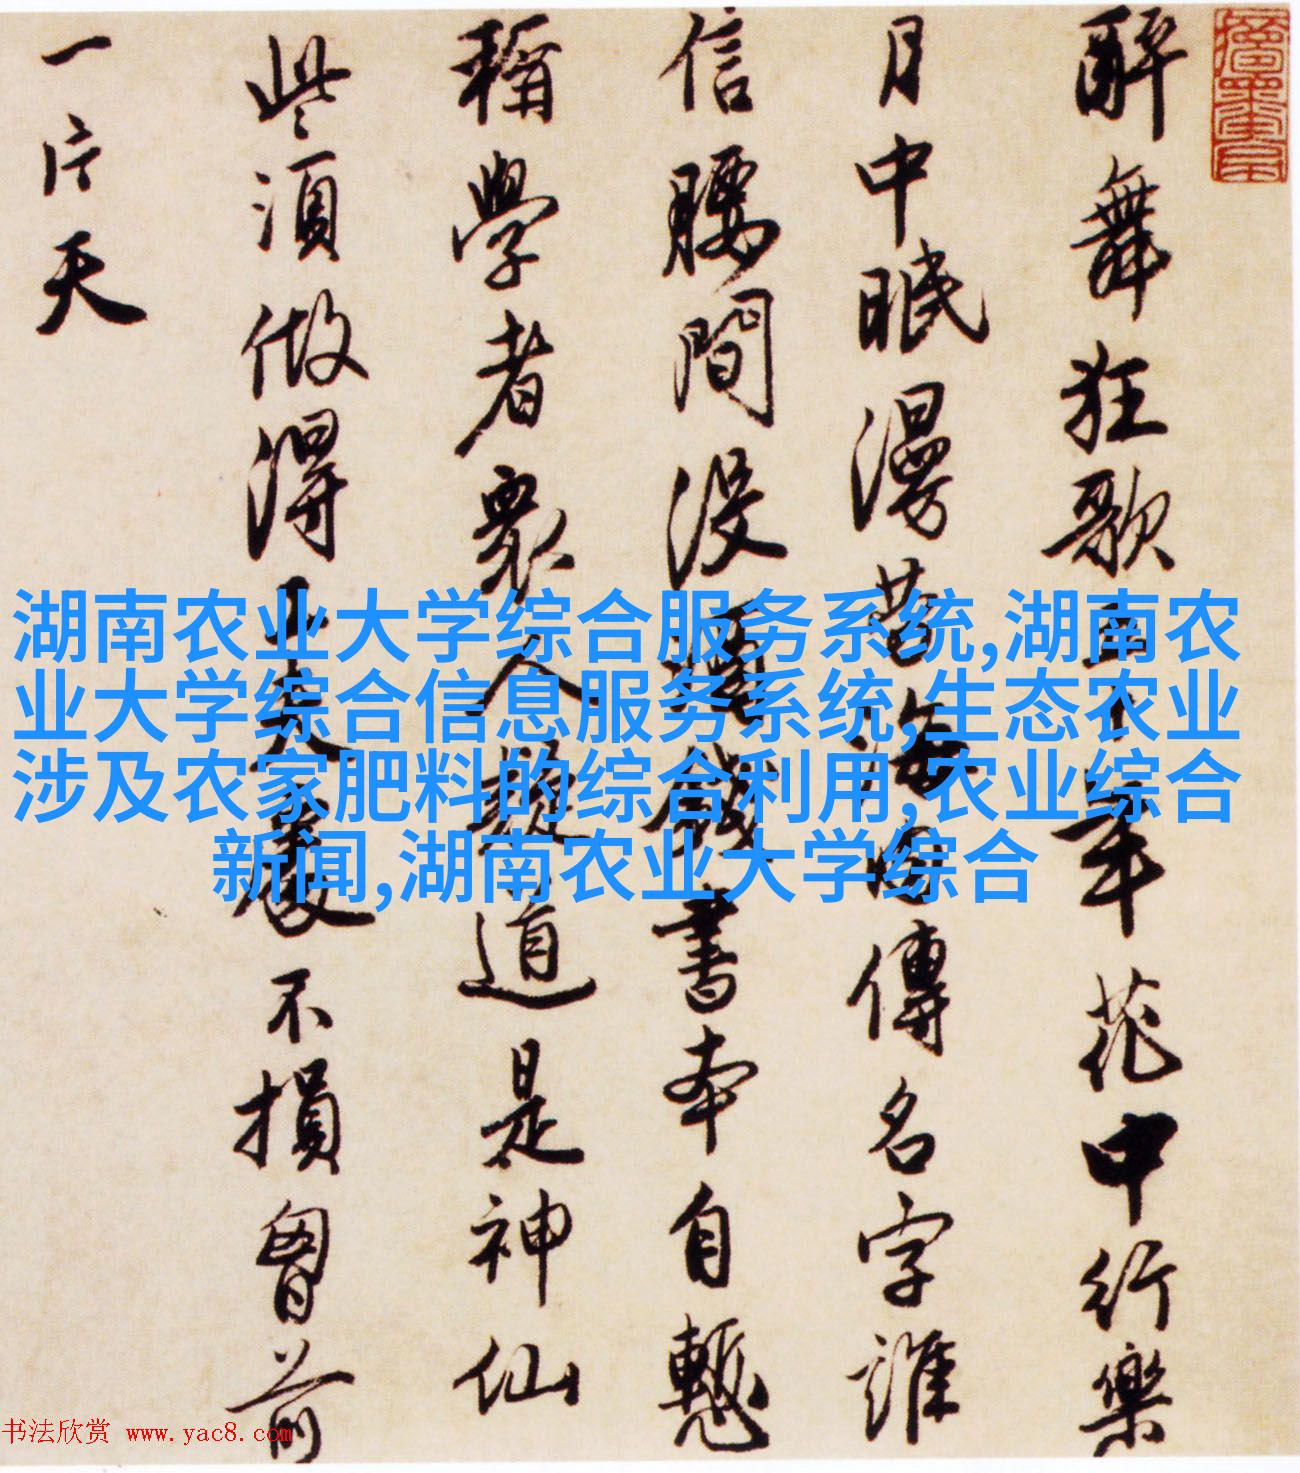 醉舞狂歌五十年花中行樂
月中眠漫勞海內傳名字誰
信腰間沒酒錢書本自慙
稱學者眾人疑道是神仙
些須做得工夫處不損胷前
一片天
湖南农业大学综合服务系统,湖南农
业大学综合信息服务系统,生态农业
涉及农家肥料的综合利用,农业综合
新闻,湖南农业大学综合
书法欣赏 www.yac8.com